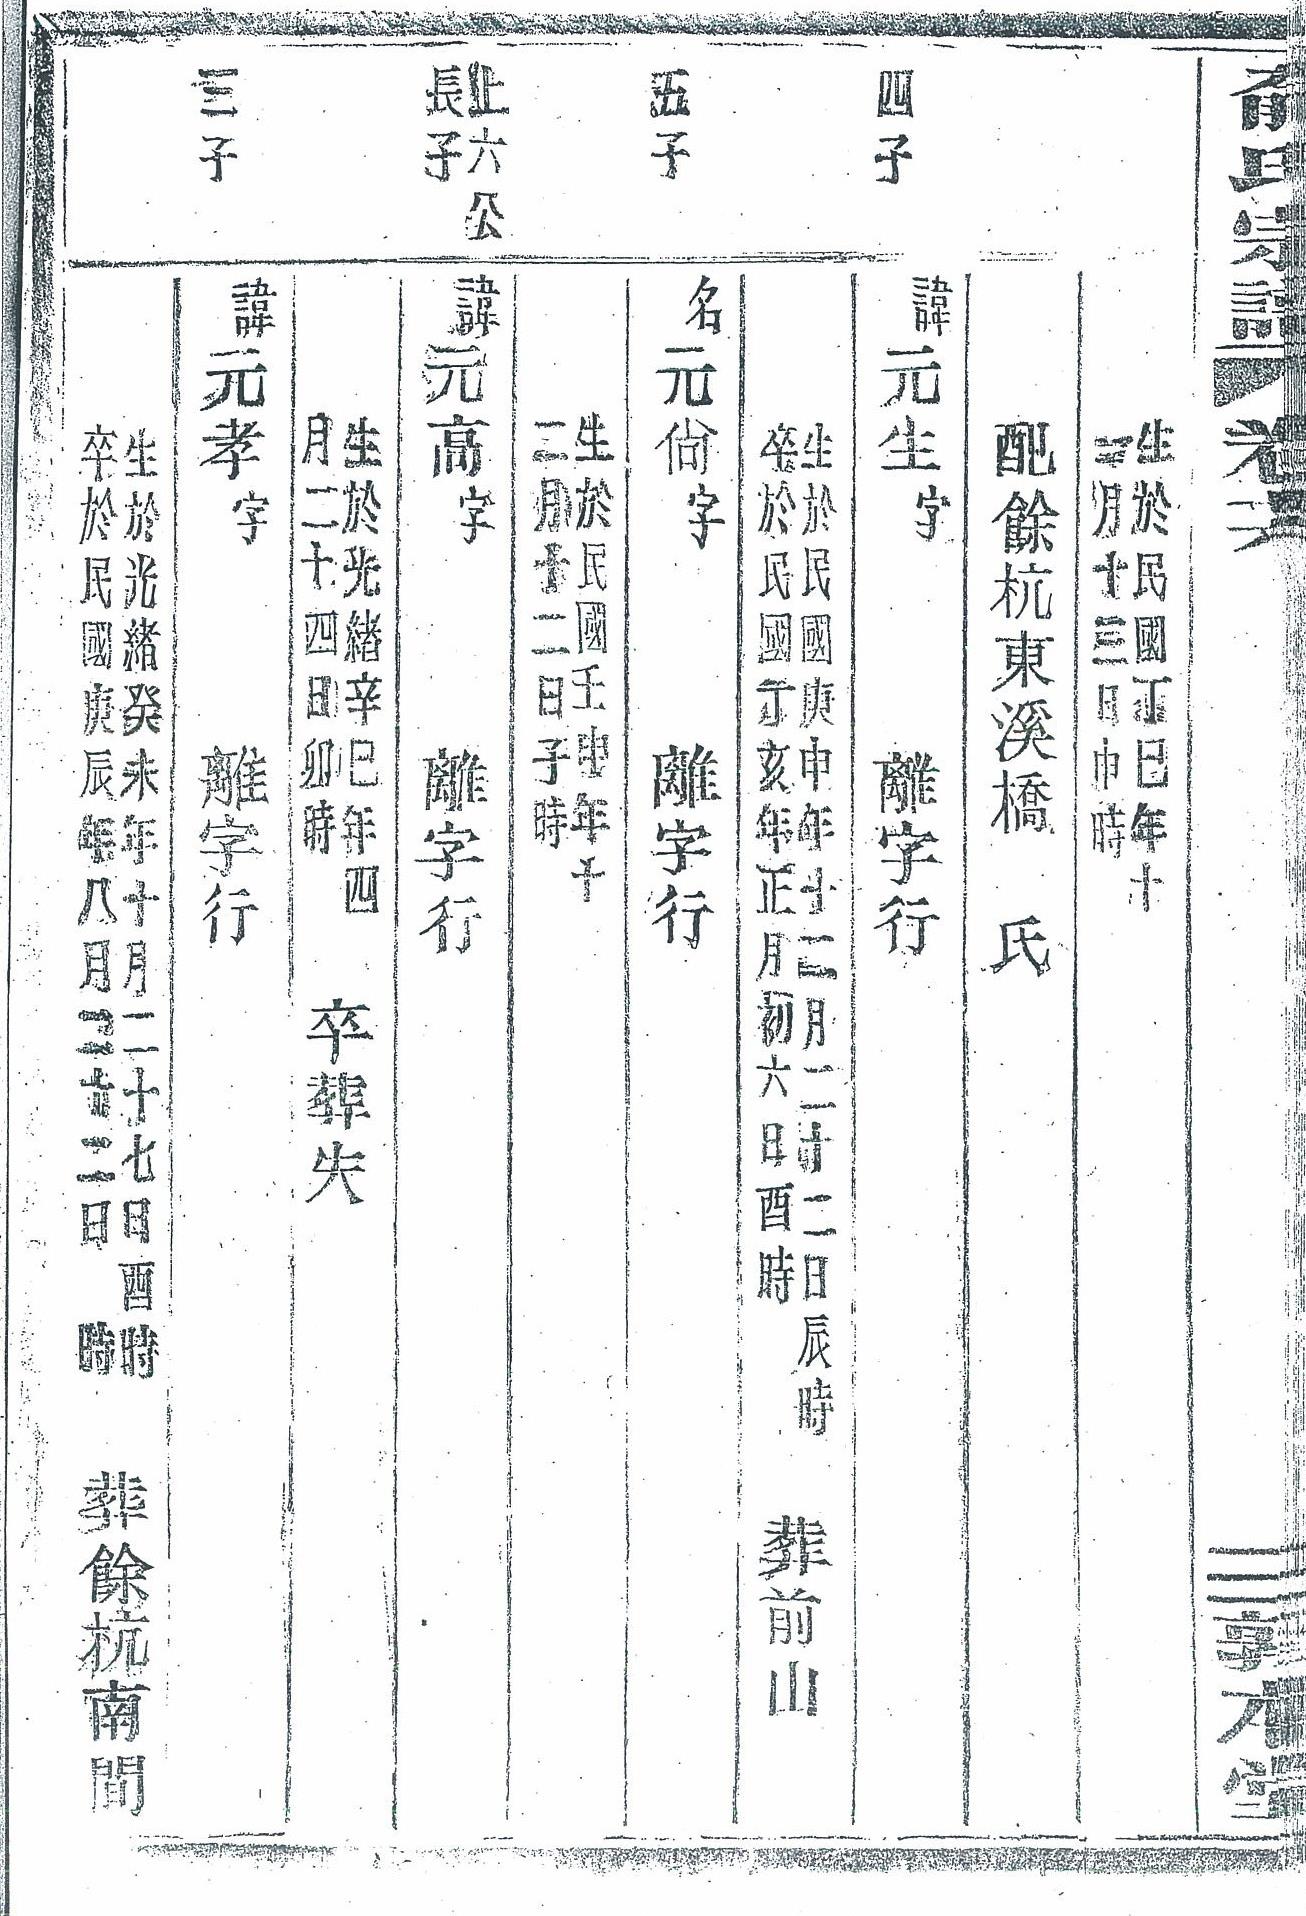 俞氏宗譜
卷六
三 享元堂
生於民國丁巳年十
二月十三日巾時
配餘杭東溪橋 氏
四子
諱元生字 離字行
生於民國庚申年十二月二十二日辰時
卒於民國丁亥年正月初六日酉時
葬前山
五子
名元尙字 離字行
生於民國壬申年十
二月十二日子時
止六公
長子
諱元高字 離字行
生於光緒辛巳年四
月二十四日卯時
卒葬失
三子
諱元孝字 離字行
生於光緒癸未年十月二十七日酉時
卒於民國庚辰年八月二十二日 時
葬餘杭南間